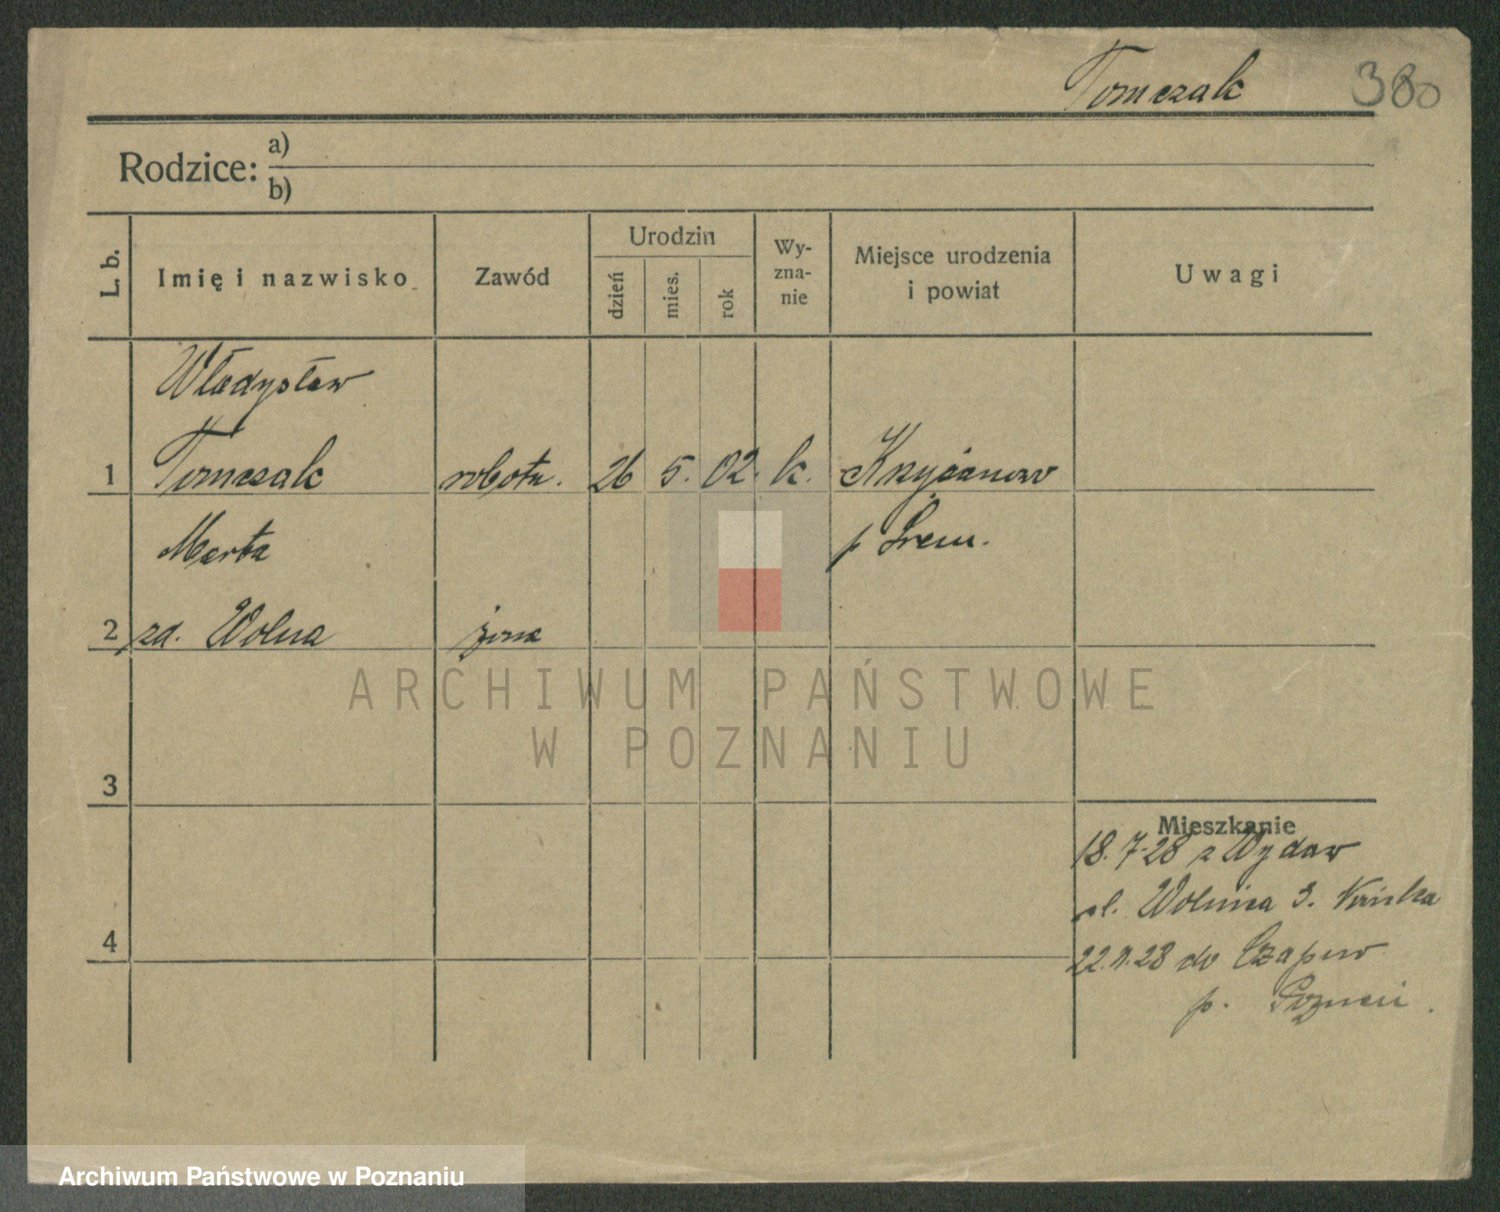 Tomczak 380
Rodzice: a)
b)
L. b. Imię i nazwisko Zawód Urodzin dzień mies. rok Wy-zna-nie Miejsce urodzenia i powiat Uwagi
Władysław
1 Tomczak robotn. 26 5. 02. k. Krzyżanowo
Marta p Śrem.
2 zd. Wolna żona
ARCHIWUM PAŃSTWOWE
W POZNANIU
3
Mieszkanie
18.7.28 z Wydaw
ul. Wolnica 3.
4
22. .28 do Czapur
p. Poznań.
Archiwum Państwowe w Poznaniu